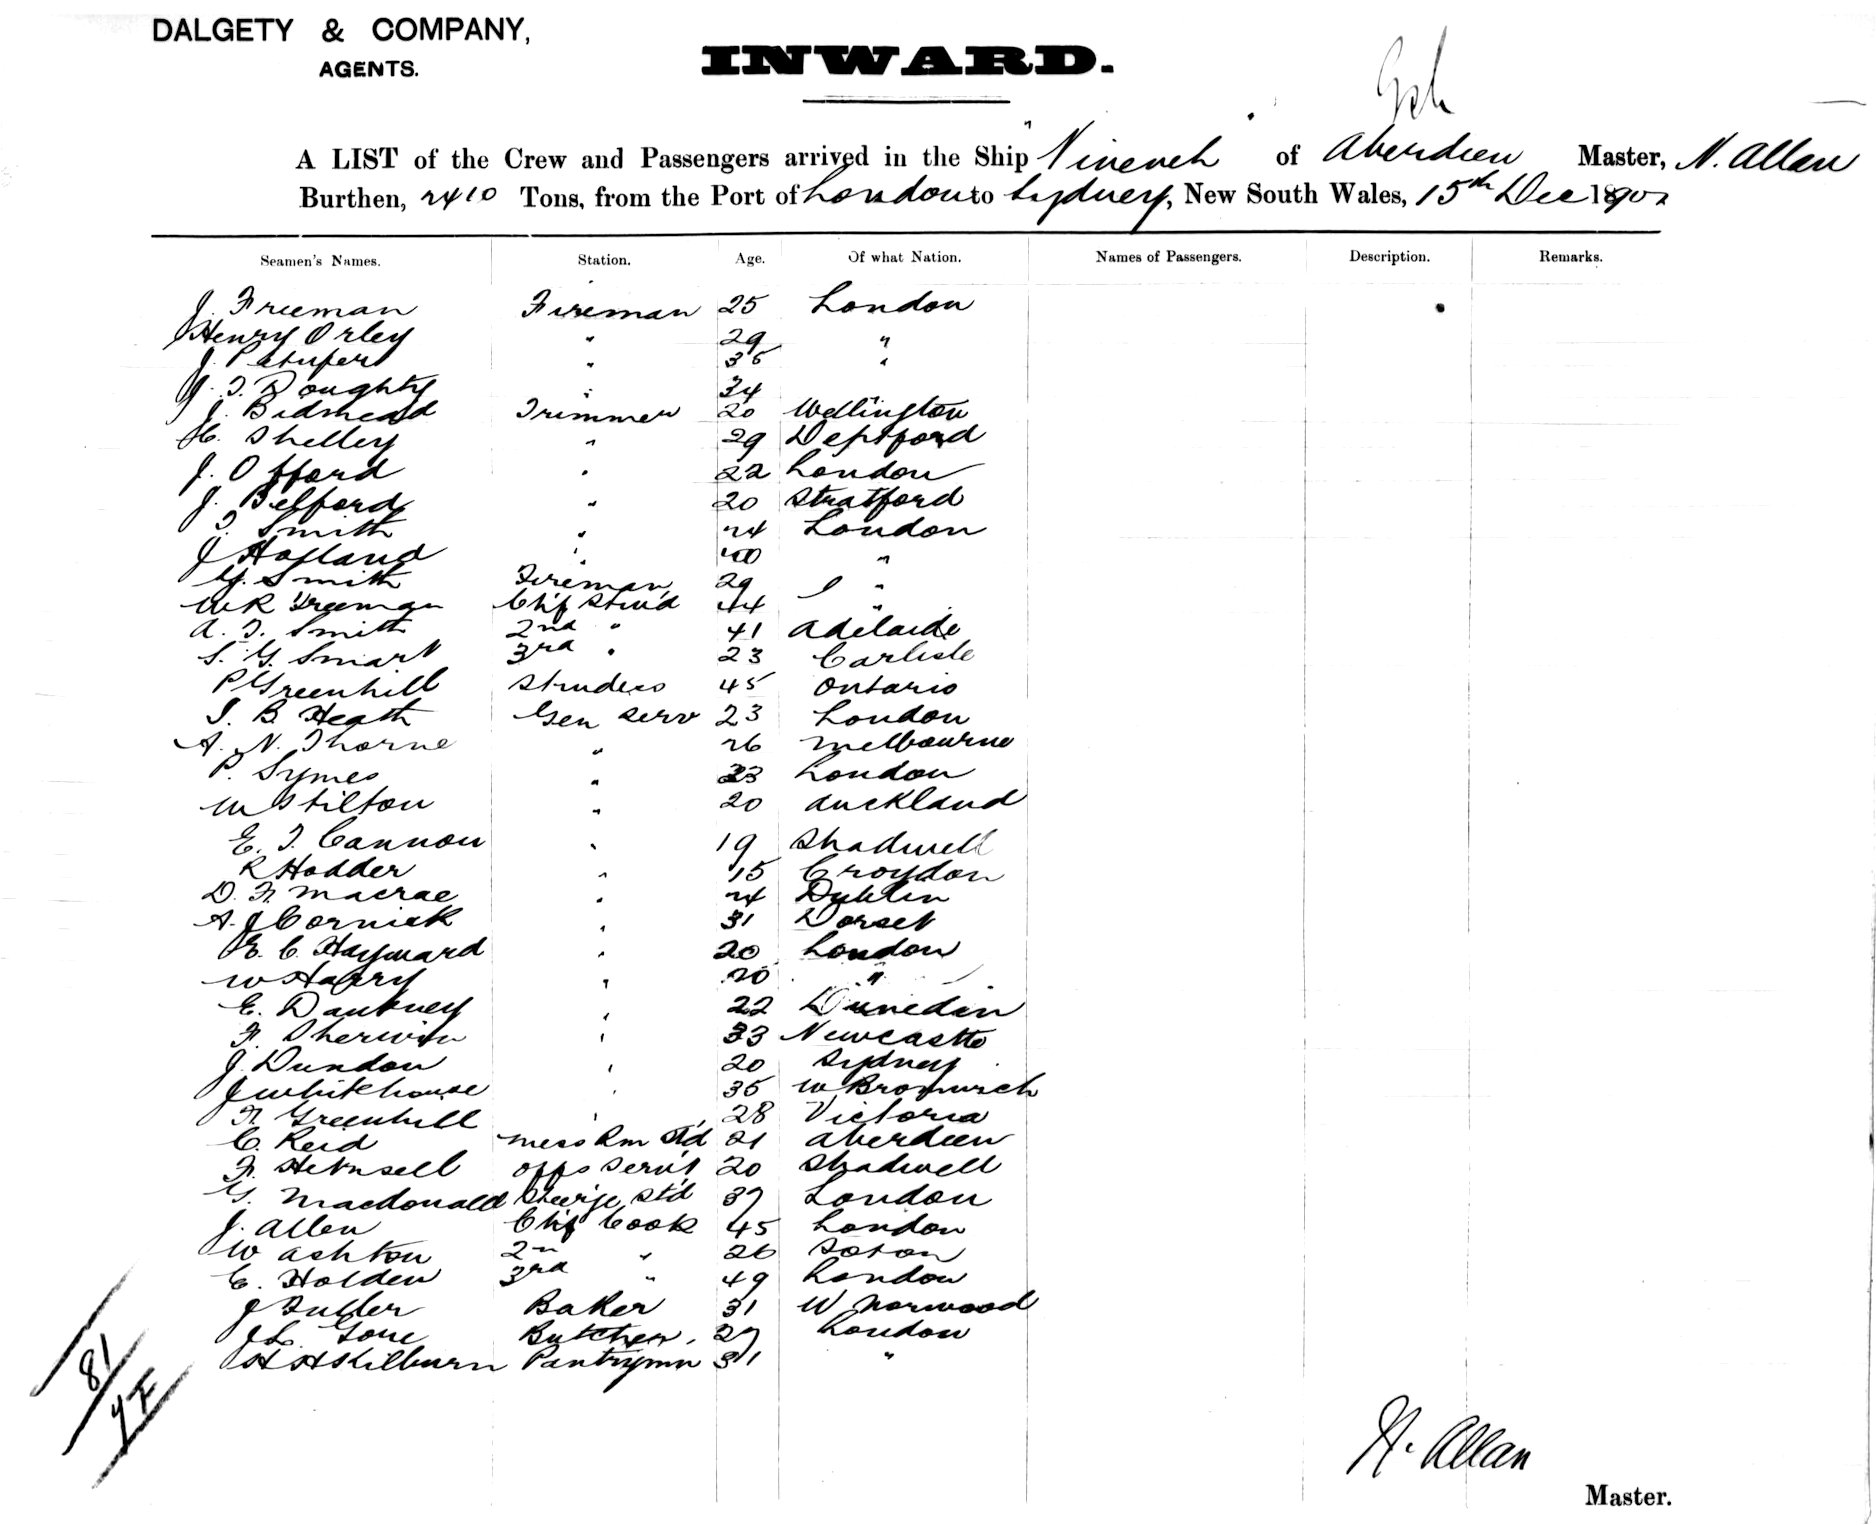 DALGETY & COMPANY,
AGENTS.
INWARD.
A LIST of the Crew and Passengers arrived in the Ship "Nineveh" of Aberdeen Master, N. Allan
Burthen, 2410 Tons, from the Port of London to Sydney, New South Wales, 15th Dec 1902
Seamen's Names. Station. Age. Of what Nation. Names of Passengers. Description. Remarks.
J. Freeman Fireman 25 London
Henry Orley " 29 "
J. " 35 "
J. T. Doughty " 34
J. Bidmead Trimmer 20 Wellington
H. Shelley " 29 Deptford
J. Offord " 22 London
J. Belford " 20 Stratford
T. Smith " 24 London
J Hofland " 40 "
G. Smith Fireman 29 "
W R Freeman Chf Stew'd 44 "
A. T. Smith 2nd " 41 Adelaide
S. G. Smart 3rd " 23 Carlisle
P Greenhill 45 Ontario
S. B. Heath Gen Serv 23 London
A. N. Thorne " 26 Melbourne
P. Symes " 23 London
W Stilton " 20 Auckland
E. T. Cannon " 19 Shadwell
R Hodder " 15 Croydon
D. F. Macrae " 24 Dublin
A. J Cornick " 31 Dorset
E. C. Hayward " 20 London
W Harry " 20 "
E. Dankney " 22 Dunedin
F. Sherwin " 33 Newcastle
J. Dundon " 20 Sydney
J Whitehouse " 35 W Bromwich
F. Greenhill " 28 Victoria
C. Reid Mess Rm Std 21 Aberdeen
F. Offs Serv't 20 Shadwell
G. Macdonald Steer'ge Std 37 London
J. Allen Chf Cook 45 London
W Ashton 2n " 26 Soton
C. Holden 3rd " 49 London
J Fuller Baker 31 W Norwood
J L. Gone Butcher 27 London
H H Kilburn Pantrymn 31 "
81
N. Allan
Master.